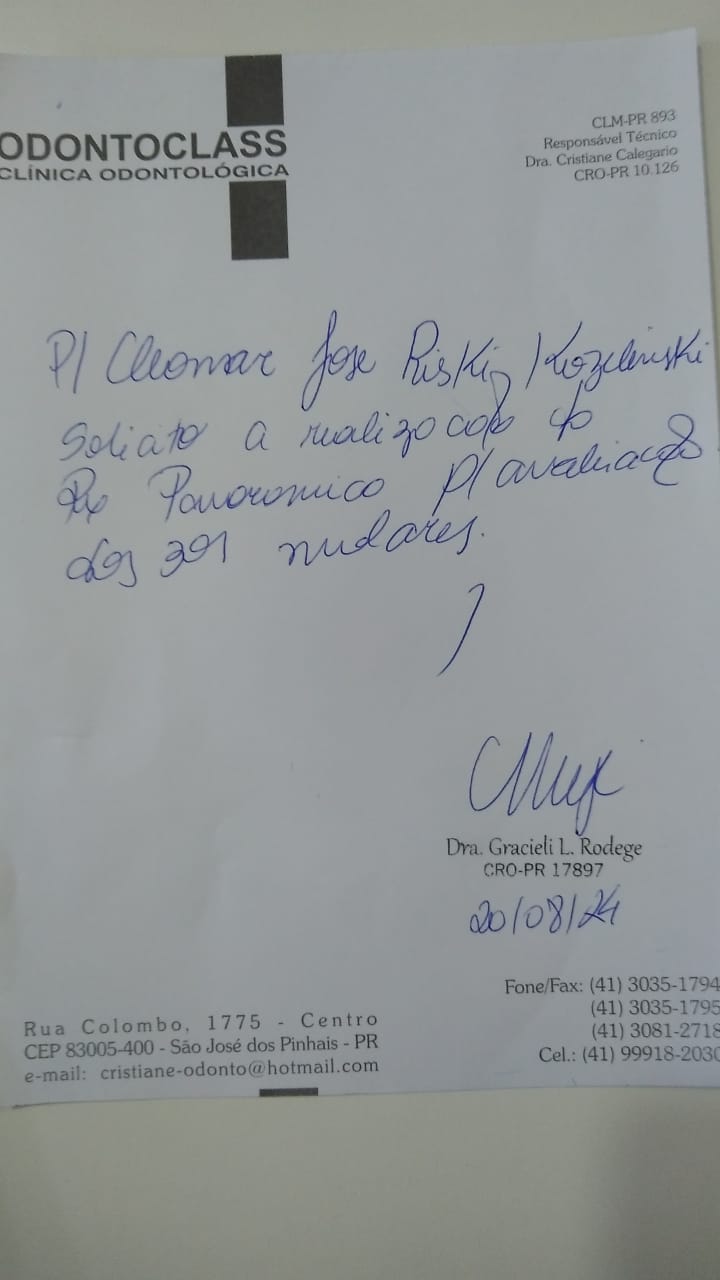 ODONTOCLASS
CLÍNICA ODONTOLÓGICA
CLM-PR 893
Responsável Técnico
Dra. Cristiane Calegario
CRO-PR 10.126
P/ Cleomar Jose
Solicito a realização do
Rx Panoramico p/ avaliação
dos 3ºs molares.
Dra. Gracieli L. Rodege
CRO-PR 17897
20/08/24
Rua Colombo, 1775 - Centro
CEP 83005-400 - São José dos Pinhais - PR
e-mail: cristiane-odonto@hotmail.com
Fone/Fax: (41) 3035-1794
(41) 3035-1795
(41) 3081-2718
Cel.: (41) 99918-2030